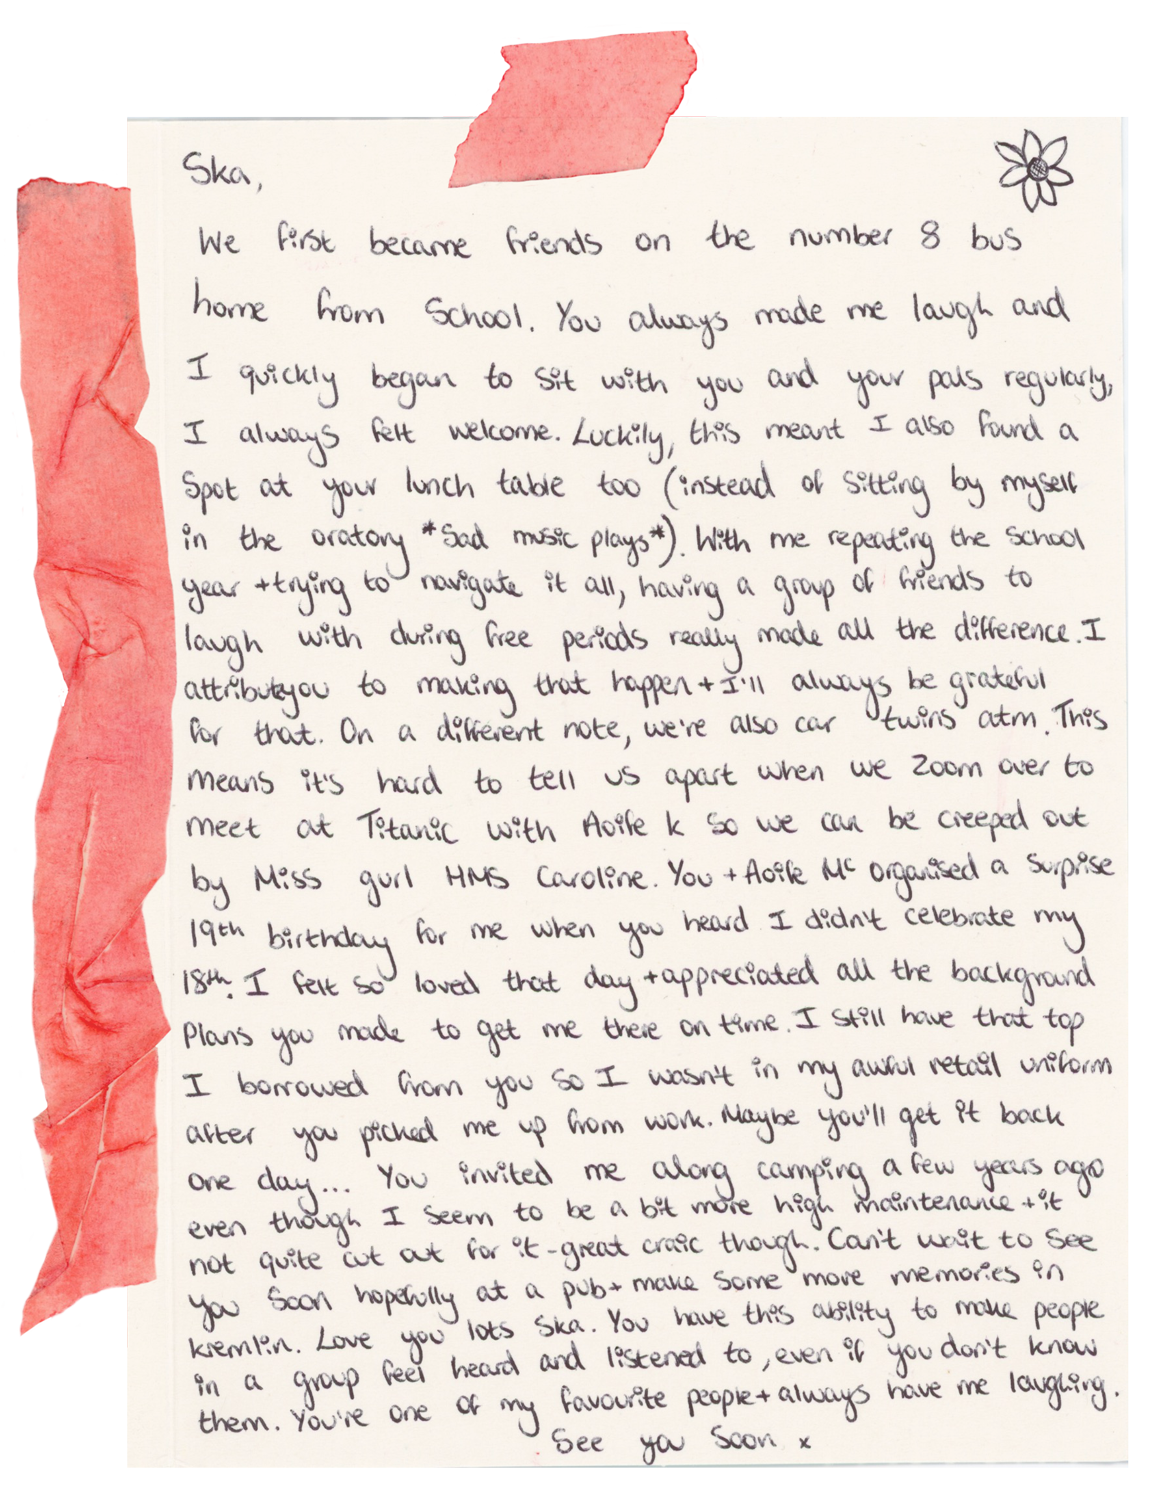 Ska,
We first became friends on the number 8 bus
home from School. You always made me laugh and
I quickly began to sit with you and your pals regularly,
I always felt welcome. Luckily, this meant I also found a
Spot at your lunch table too (instead of sitting by myself
in the oratory *Sad music plays*). With me repeating the School
year + trying to navigate it all, having a group of friends to
laugh with during free periods really made all the difference. I
attribute you to making that happen + I'll always be grateful
for that. On a different note, we're also car twins atm. This
means it's hard to tell us apart when we zoom over to
meet at Titanic with Aoife K so we can be creeped out
by Miss gurl HMS Caroline. You + Aoife Mc organised a surprise
19th birthday for me when you heard I didn't celebrate my
18th. I felt so loved that day + appreciated all the background
Plans you made to get me there on time. I still have that top
I borrowed from you so I wasn't in my awful retail uniform
after you picked me up from work. Maybe you'll get it back
one day... You invited me along camping a few years ago
even though I seem to be a bit more high maintenance + it
not quite cut out for it - great craic though. Can't wait to see
you soon hopefully at a pub + make some more memories in
kremlin. Love you lots Ska. You have this ability to make people
in a group feel heard and listened to, even if you don't know
them. You're one of my favourite people + always have me laughing.
See you Soon x